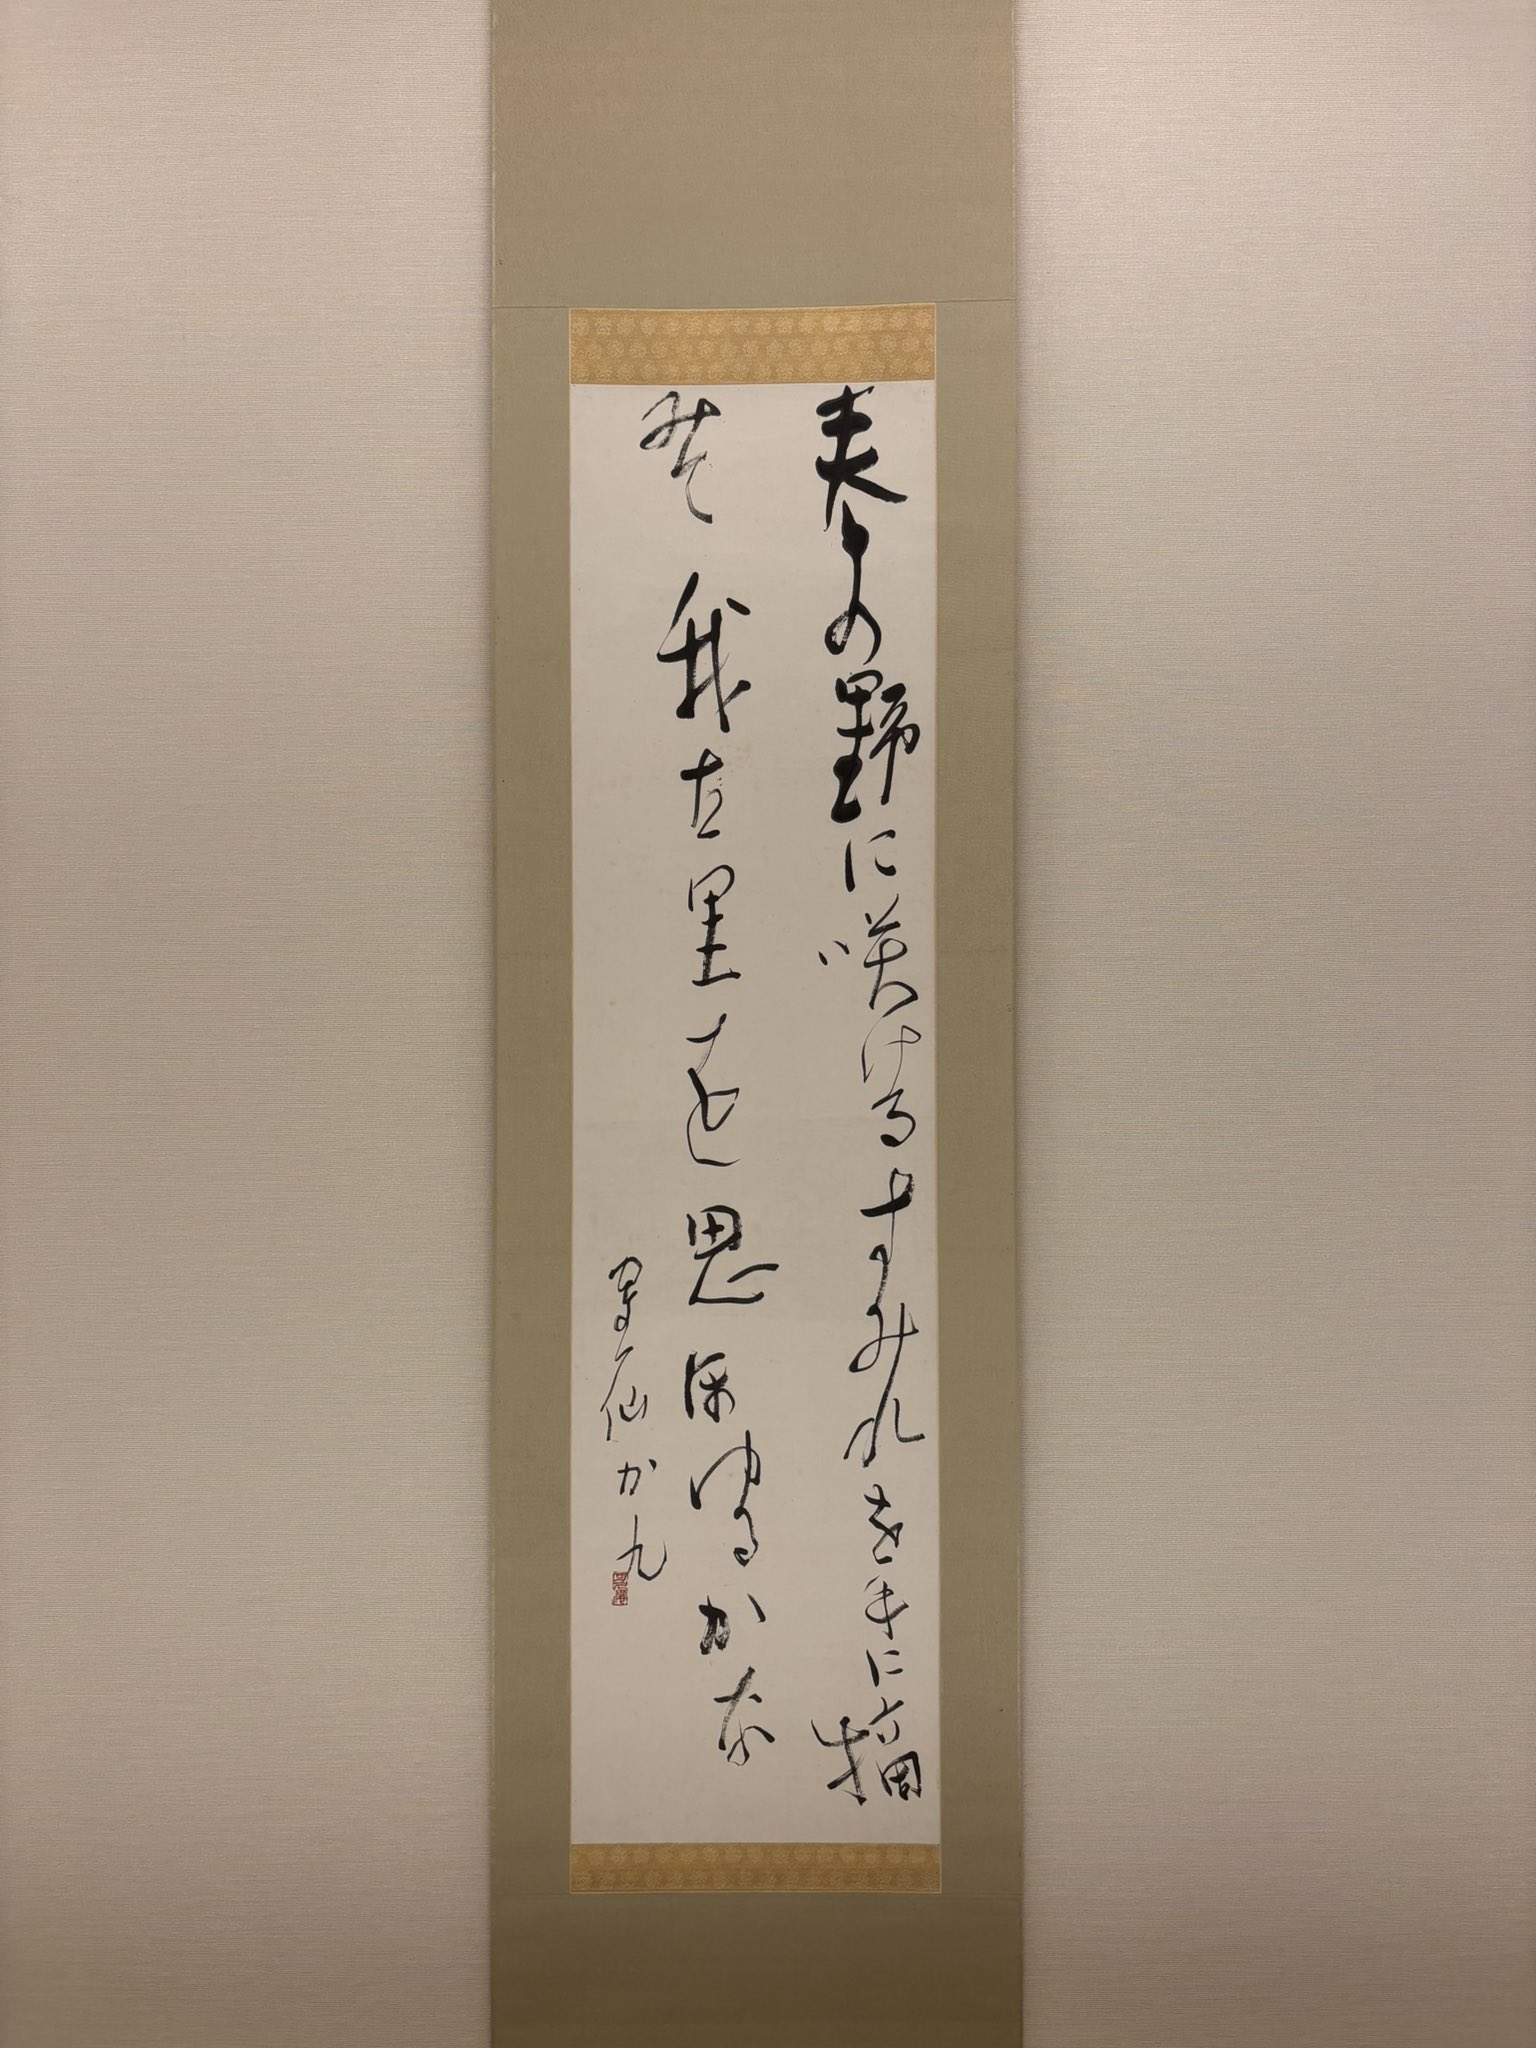 春の野に咲けるすみれを手に摘
みて我古里を思ほゆるかな